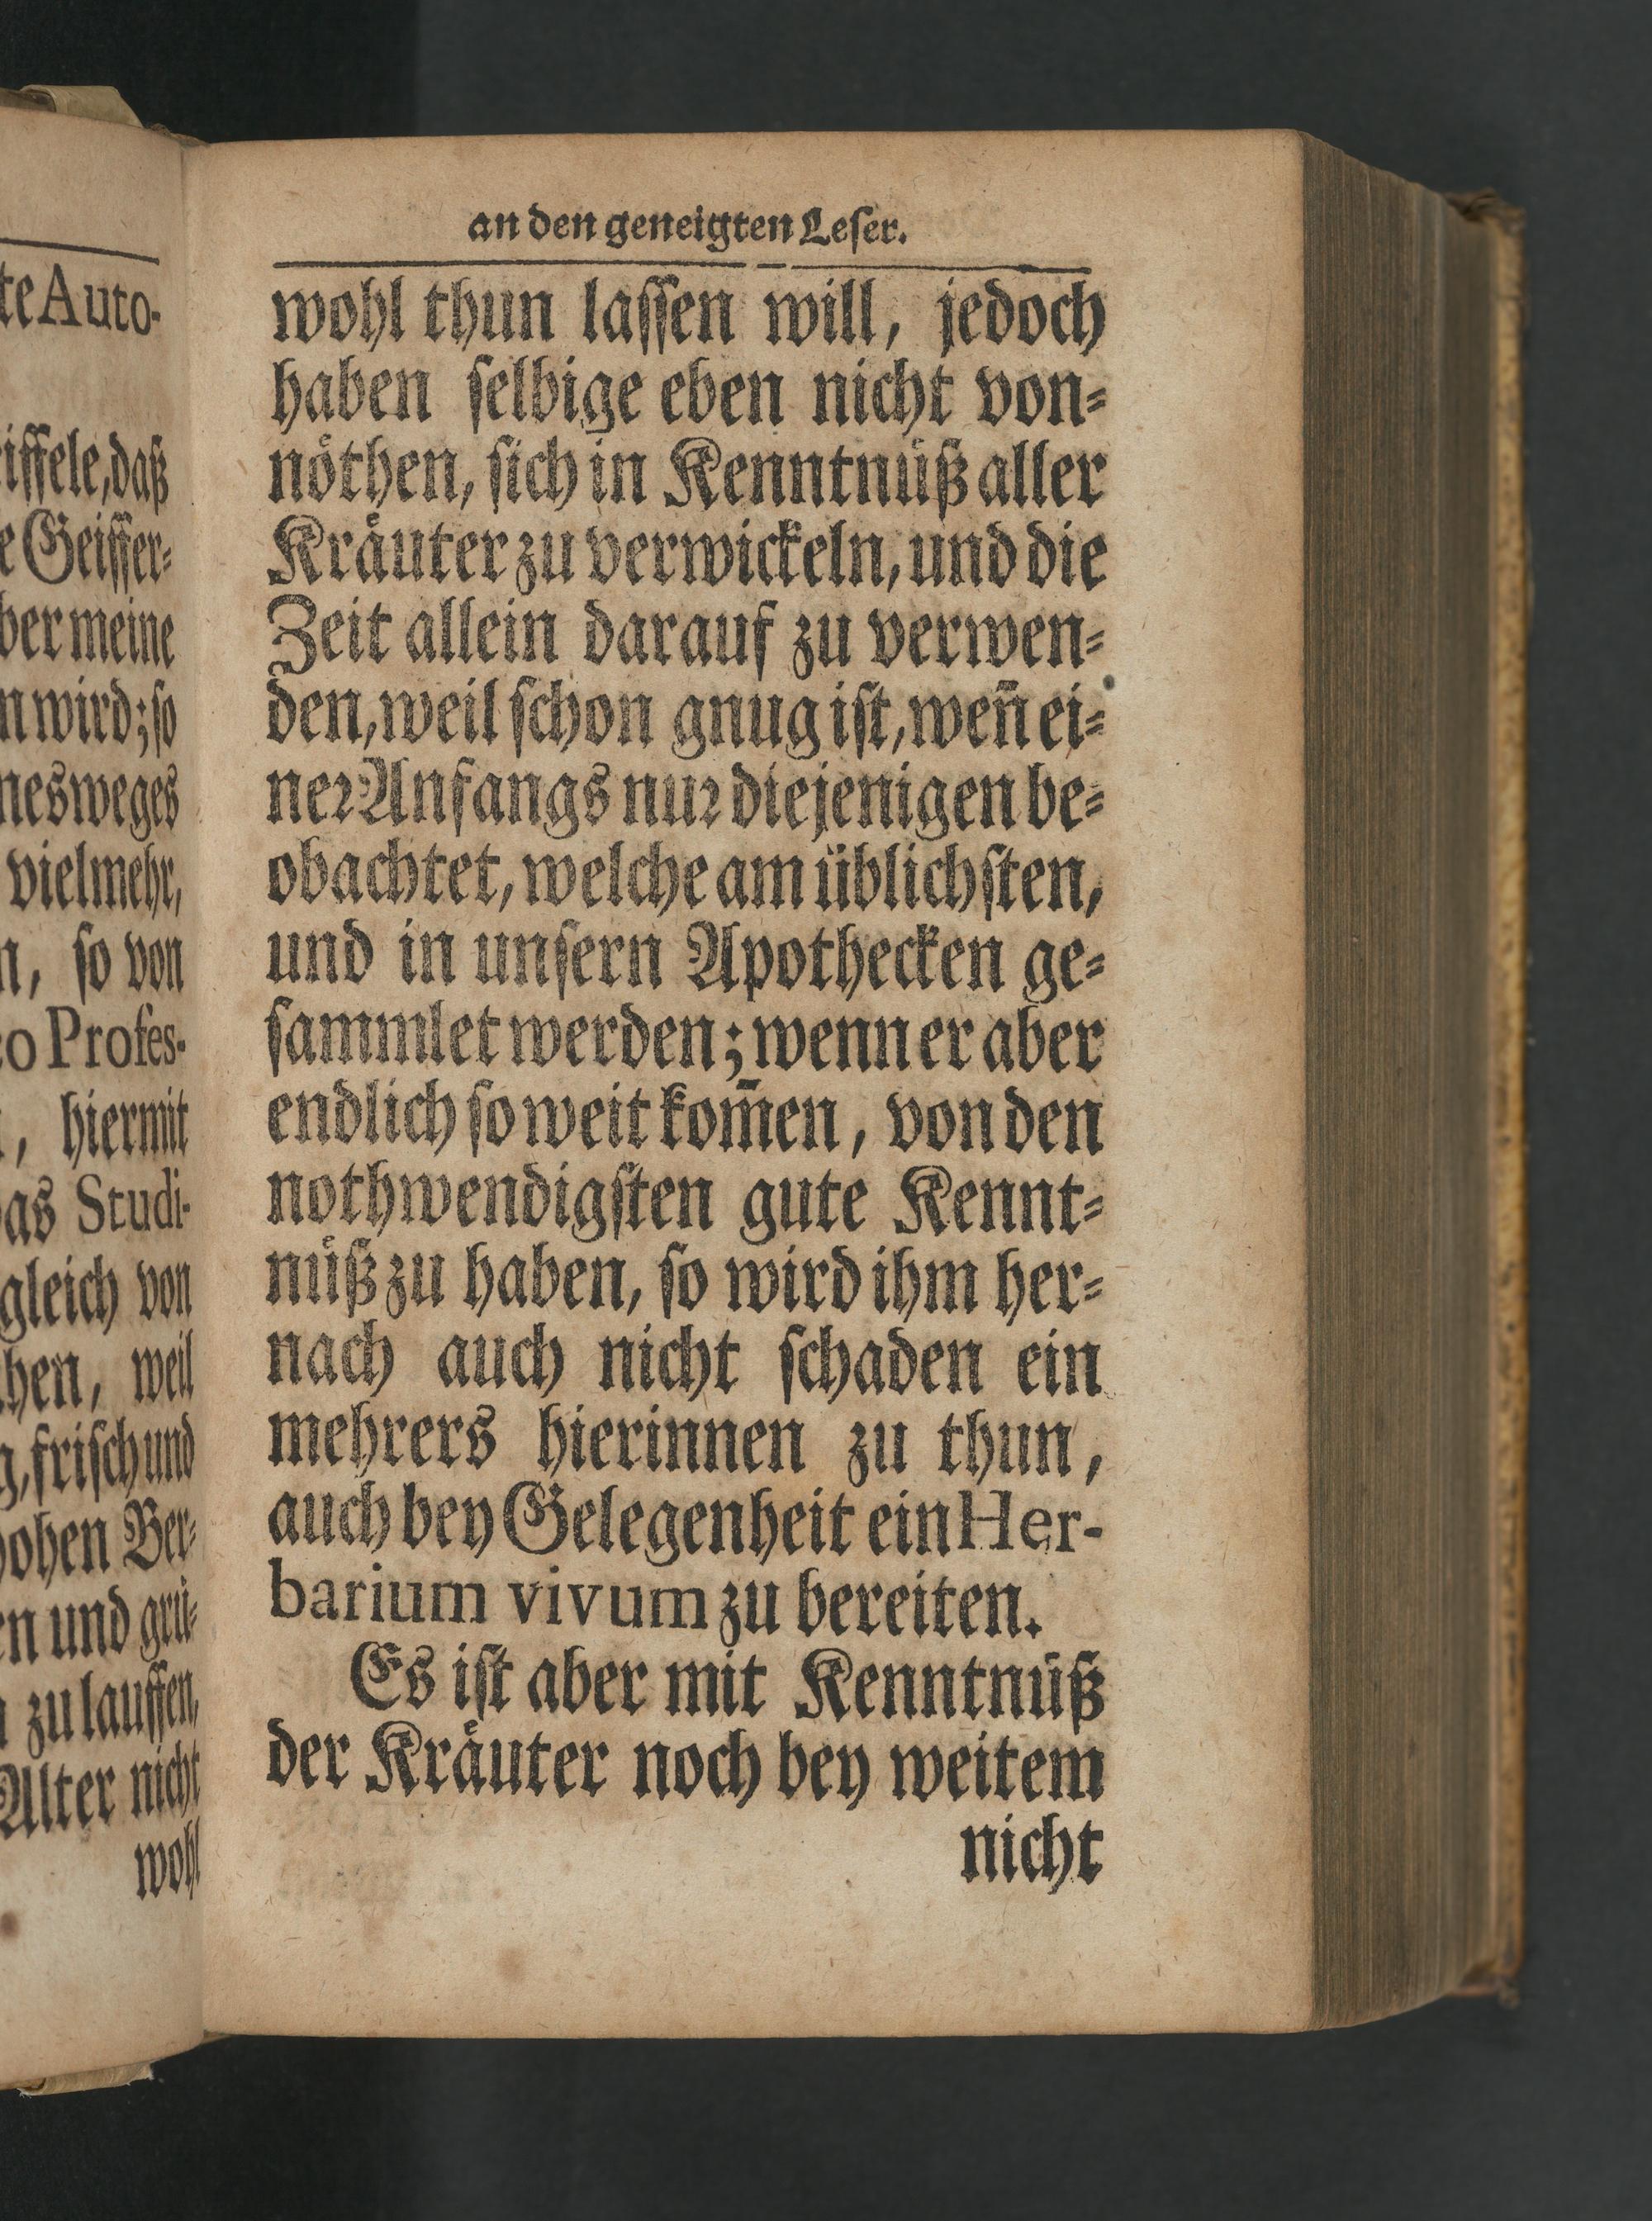 te Auto-
iffele, daß
e Geiffer-
ber meine
n wird; so
nesweges
vielmehr,
n, so von
o Profes-
, hiermit
as Studi-
gleich von
hen, weil
g, frisch und
ohen Ber-
en und grü-
zu lauffen,
Alter nicht
wohl
an den geneigten Leser.
wohl thun lassen will, jedoch
haben selbige eben nicht von-
nöthen, sich in Kenntnüß aller
Kräuter zu verwickeln, und die
Zeit allein darauf zu verwen-
den, weil schon gnug ist, weñ ei-
ner Anfangs nur diejenigen be-
obachtet, welche am üblichsten,
und in unsern Apothecken ge-
sammlet werden; wenn er aber
endlich so weit kom̄en, von den
nothwendigsten gute Kennt-
nüß zu haben, so wird ihm her-
nach auch nicht schaden ein
mehrers hierinnen zu thun,
auch bey Gelegenheit ein Her-
barium vivum zu bereiten.
Es ist aber mit Kenntnüß
der Kräuter noch bey weitem
nicht